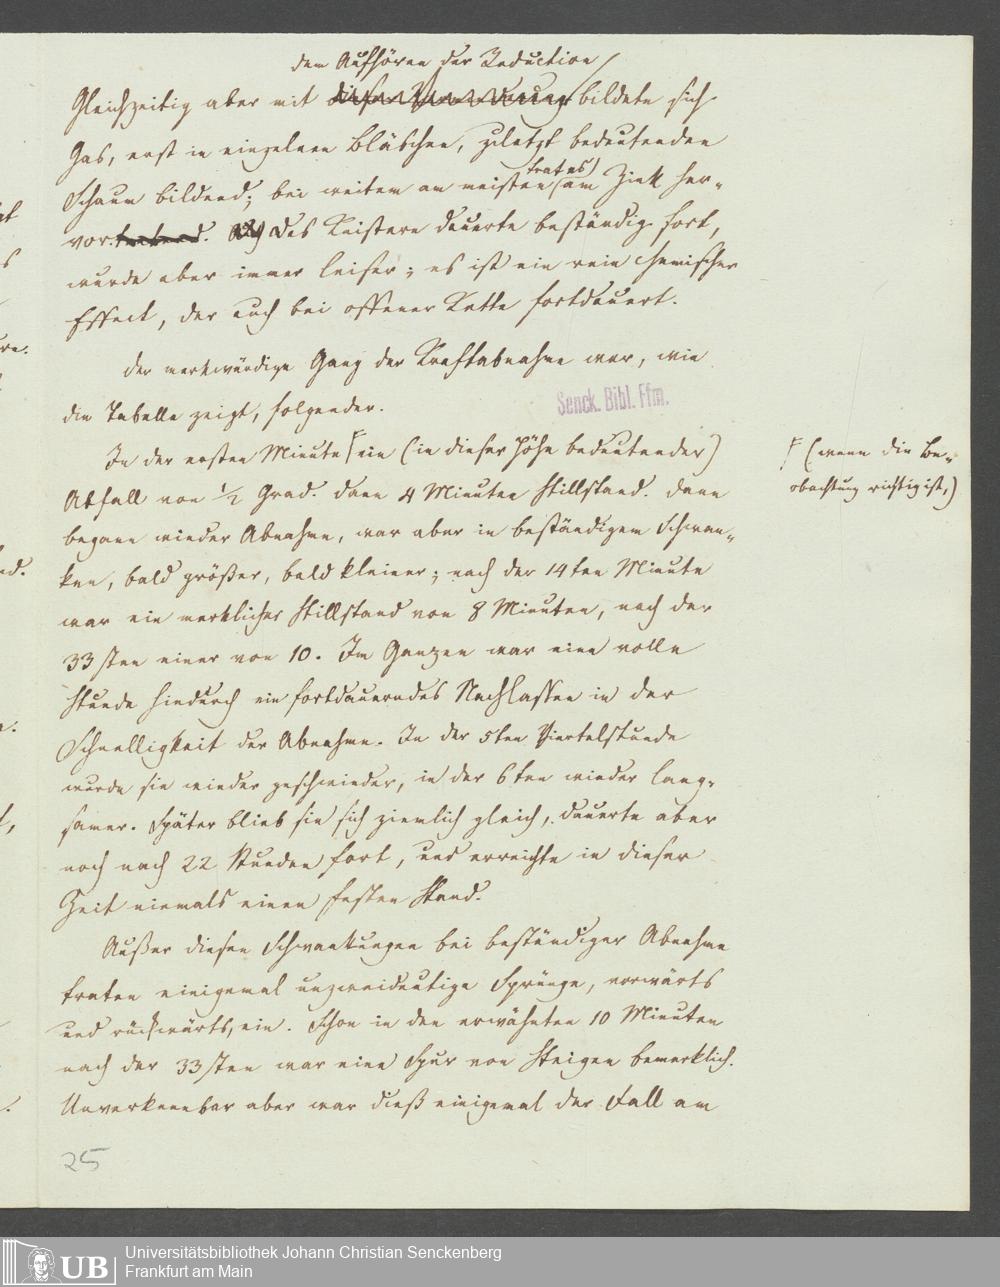 dem Aufhören der Reduction
Gleichzeitig aber mit dieser Veränderung bildete sich
Gas, erst in einzelnen Bläschen, zuletzt bedeutenden
Schaum bildend; bei weitem am meisten trat es am Zink her-
vor. tretend. Das Knistern dauerte beständig fort,
wurde aber immer leiser; es ist ein rein chemischer
Effect, der auch bei offener Kette fortdauert.
Der merkwürdige Gang der Kraftabnahme war, wie
die Tabelle zeigt, folgender.
Senck. Bibl. Ffm.
In der ersten Minute ein (in dieser Höhe bedeutender)
(wenn die Be-
obachtung richtig ist,)
Abfall von 1/2 Grad. Dann 4 Minuten Stillstand. Dann
begann wieder Abnahme, war aber in beständigem Schwan-
ken, bald größer, bald kleiner; nach der 14ten Minute
war ein merklicher Stillstand von 8 Minuten, nach der
33sten einer von 10. Im Ganzen war eine volle
Stunde hindurch ein fortdauerndes Nachlassen in der
Schnelligkeit der Abnahme. In der 5ten Viertelstunde
wurde sie wieder geschwinder, in der 6ten wieder lang-
samer. Später blieb sie sich ziemlich gleich, dauerte aber
noch nach 22 Stunden fort, und erreichte in dieser
Zeit niemals einen festen Stand.
Außer diesen Schwankungen bei beständiger Abnahme
traten einigemal unzweideutige Sprünge, vorwärts
und rückwärts, ein. Schon in den erwähnten 10 Minuten
nach der 33sten war eine Spur von Steigen bemerklich.
Unverkennbar aber war dieß einigemal der Fall am
25
UB
Universitätsbibliothek Johann Christian Senckenberg
Frankfurt am Main